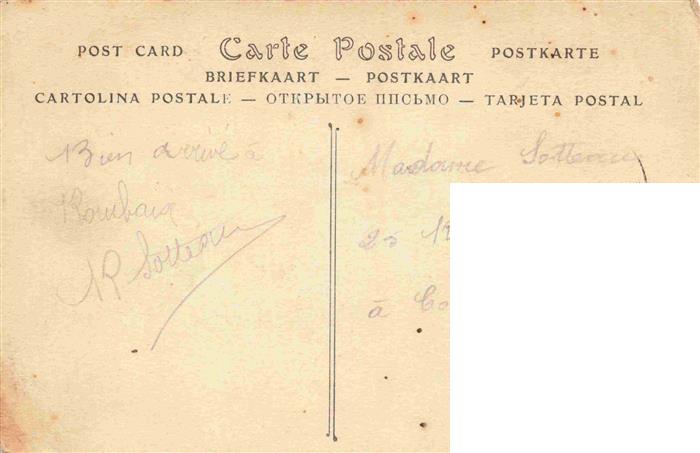 POST CARD Carte Postale POSTKARTE
BRIEFKAART — POSTKAART
CARTOLINA POSTALE — ОТКРЫТОЕ ПИСЬМО — TARJETA POSTAL
Bien arrivé à
Roubaix
Madame
25
à